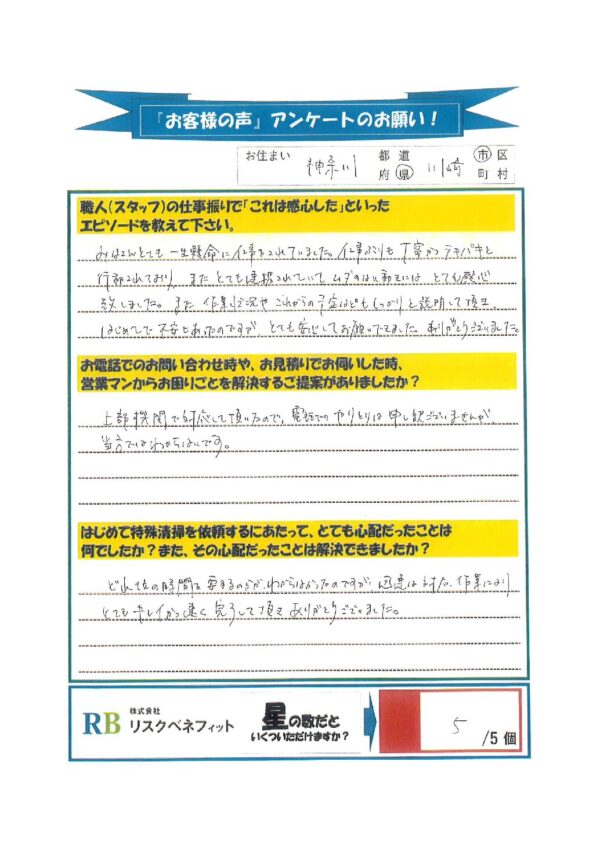 『お客様の声』アンケートのお願い！
お住まい 神奈川 都道府県 川崎 市区町村
職人（スタッフ）の仕事振りで「これは感心した」といった
エピソードを教えて下さい。
みなさんとても一生懸命に仕事をされていました。仕事よりも丁寧かつテキパキと
行動されており、またとても連携されていて ムダのない動きには とても感心
致しました。また 作業状況や これからの予定なども しっかりと説明して頂き
はじめてで不安もあったのですが、とても安心してお願いできました。ありがとうございました。
お電話でのお問い合わせ時や、お見積りでお伺いした時、
営業マンからお困りごとを解決するご提案がありましたか？
上部機関で対応して頂いたので、電話でのやりとりは申し訳ございませんが、
当方ではわからないです。
はじめて特殊清掃を依頼するにあたって、とても心配だったことは
何でしたか？また、その心配だったことは解決できましたか？
どれ位の時間を要するのかが、わからなかったのですが、迅速な対応、作業により
とてもキレイかつ速く完了して頂き ありがとうございました。
RB 株式会社
リスクベネフィット
星の数だと
いくついただけますか？
5 /5個